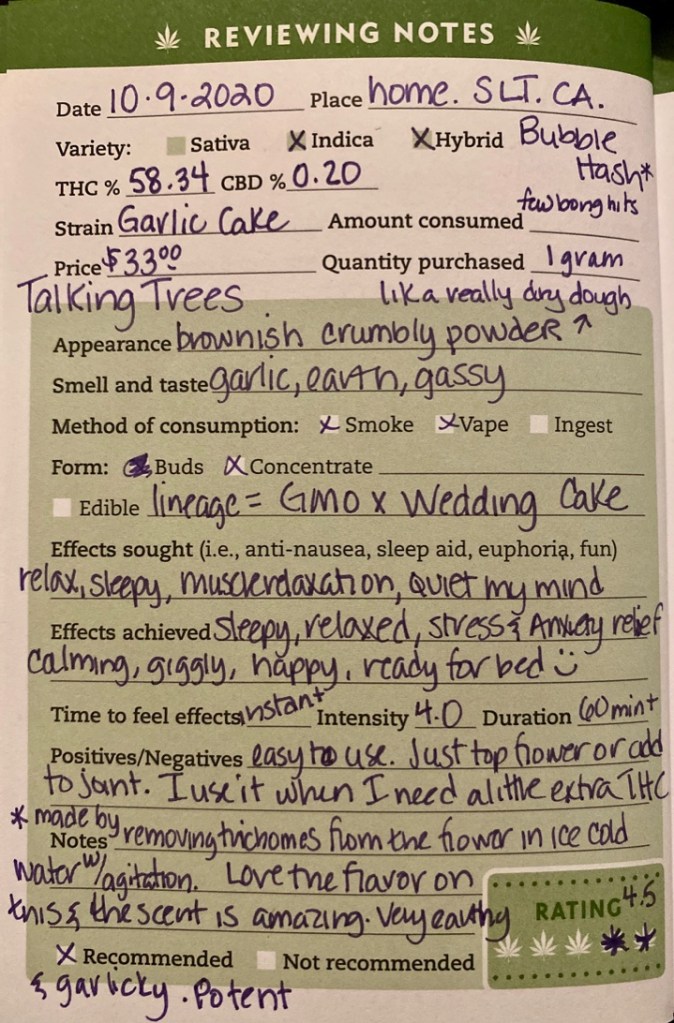 REVIEWING NOTES
Date 10.9.2020 Place home. SLT. CA.
Variety: Sativa X Indica X Hybrid Bubble
Hash*
THC % 58.34 CBD % 0.20
few bong hits
Strain Garlic Cake Amount consumed
Price $33.00 Quantity purchased 1 gram
Talking Trees lik a really dry dough
Appearance brownish crumbly powder ↑
Smell and taste garlic, earth, gassy
Method of consumption: x Smoke x Vape Ingest
Form: Buds X Concentrate
Edible lineage = GMO x Wedding Cake
Effects sought (i.e., anti-nausea, sleep aid, euphoria, fun)
relax, sleepy, muscle relaxation, quiet my mind
Effects achieved sleepy, relaxed, stress & Anxiety relief
calming, giggly, happy, ready for bed :)
Time to feel effects instant Intensity 4.0 Duration 60 min+
Positives/Negatives easy to use. Just top flower or add
to joint. I use it when I need a little extra THC
* made by
Notes removing trichomes from the flower in ice cold
water w/ agitation. Love the flavor on
this & the scent is amazing. Very earthy
RATING 4.5
X Recommended Not recommended
& garlicky. Potent